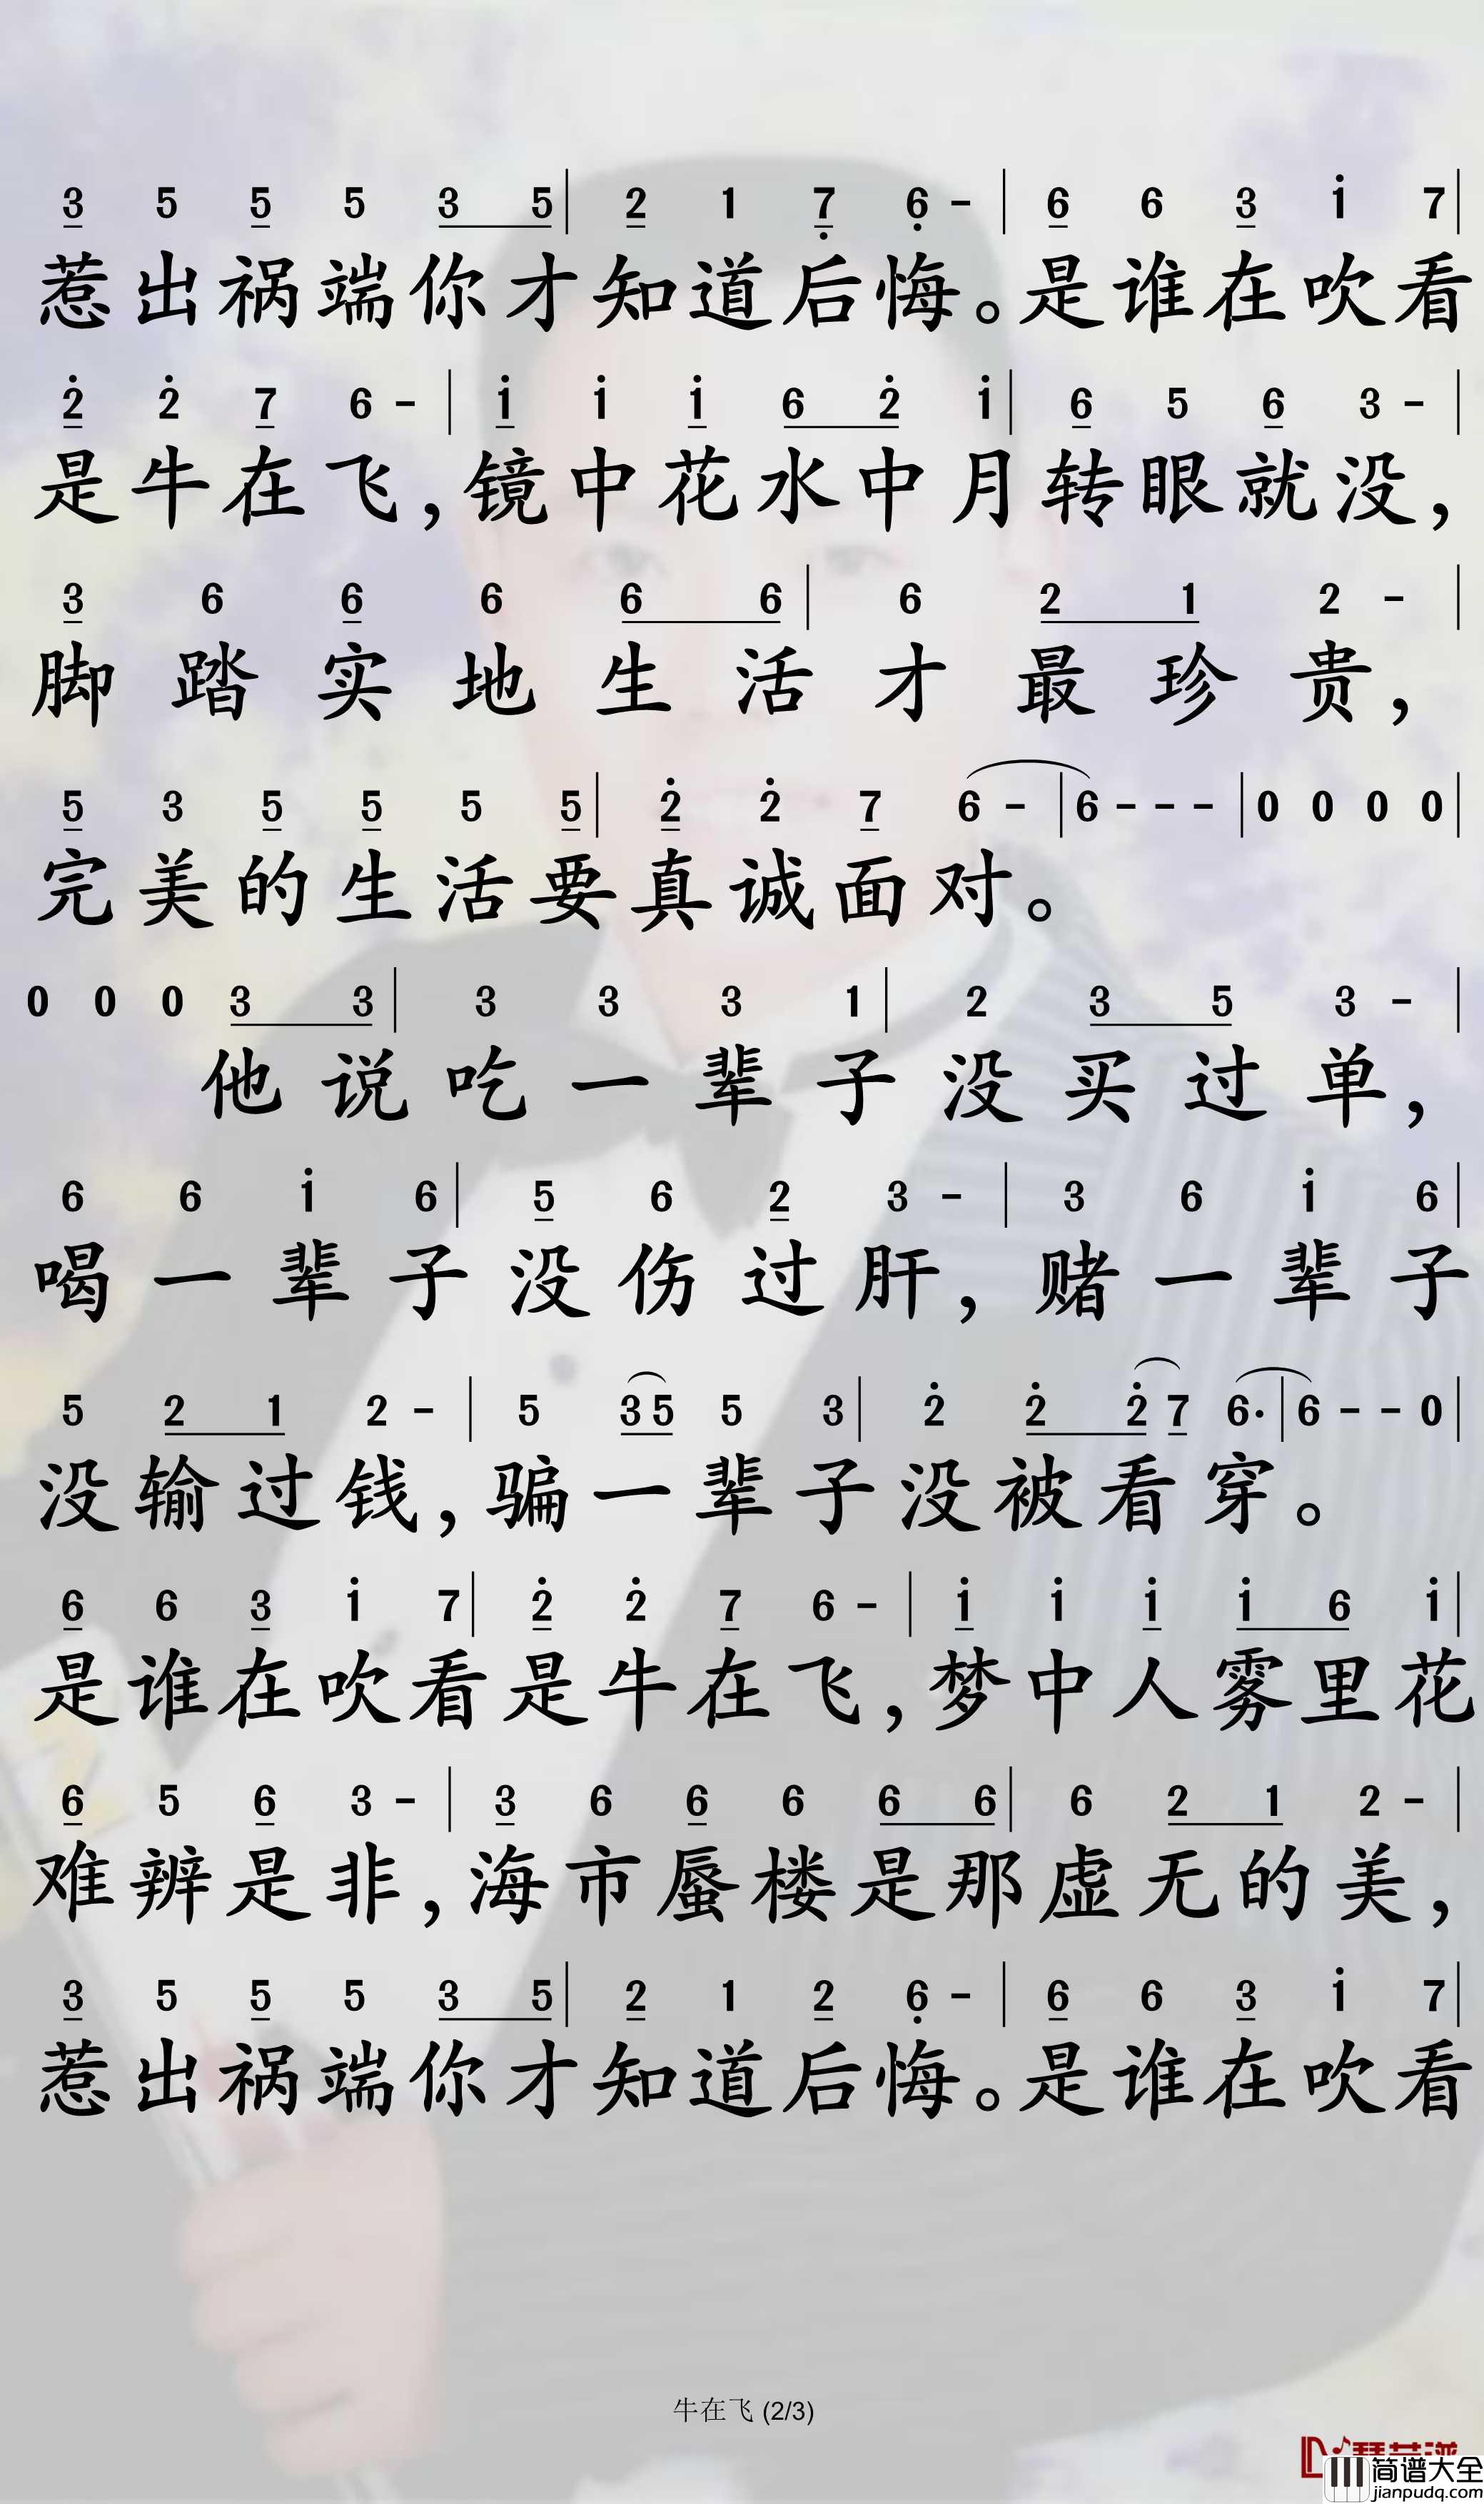 3 5 5 5 3 5 | 2 1 7̣ 6̣ - | 6 6 3 1̇ 7 |
惹出祸端你才知道后悔。是谁在吹看
2̇ 2̇ 7 6 - | 1̇ 1̇ 1̇ 6 2̇ 1̇ | 6 5 6 3 - |
是牛在飞,镜中花水中月转眼就没,
3 6 6 6 6 6 | 6 2 1 2 - |
脚踏实地生活才最珍贵,
5 3 5 5 5 5 | 2̇ 2̇ 7 6 - | 6 - - - | 0 0 0 0 |
完美的生活要真诚面对。
0 0 0 3 3 | 3 3 3 1 | 2 3 5 3 - |
他说吃一辈子没买过单,
6 6 1̇ 6 | 5 6 2 3 - | 3 6 1̇ 6 |
喝一辈子没伤过肝,赌一辈子
5 2 1 2 - | 5 3 5 5 3 | 2̇ 2̇ 2̇ 7 6· | 6 - - 0 |
没输过钱,骗一辈子没被看穿。
6 6 3 1̇ 7 | 2̇ 2̇ 7 6 - | 1̇ 1̇ 1̇ 1̇ 6 1̇ |
是谁在吹看是牛在飞,梦中人雾里花
6 5 6 3 - | 3 6 6 6 6 6 | 6 2 1 2 - |
难辨是非,海市蜃楼是那虚无的美,
3 5 5 5 3 5 | 2 1 2 6̣ - | 6 6 3 1̇ 7 |
惹出祸端你才知道后悔。是谁在吹看
牛在飞 (2/3)
简谱大全
jianpudq.com